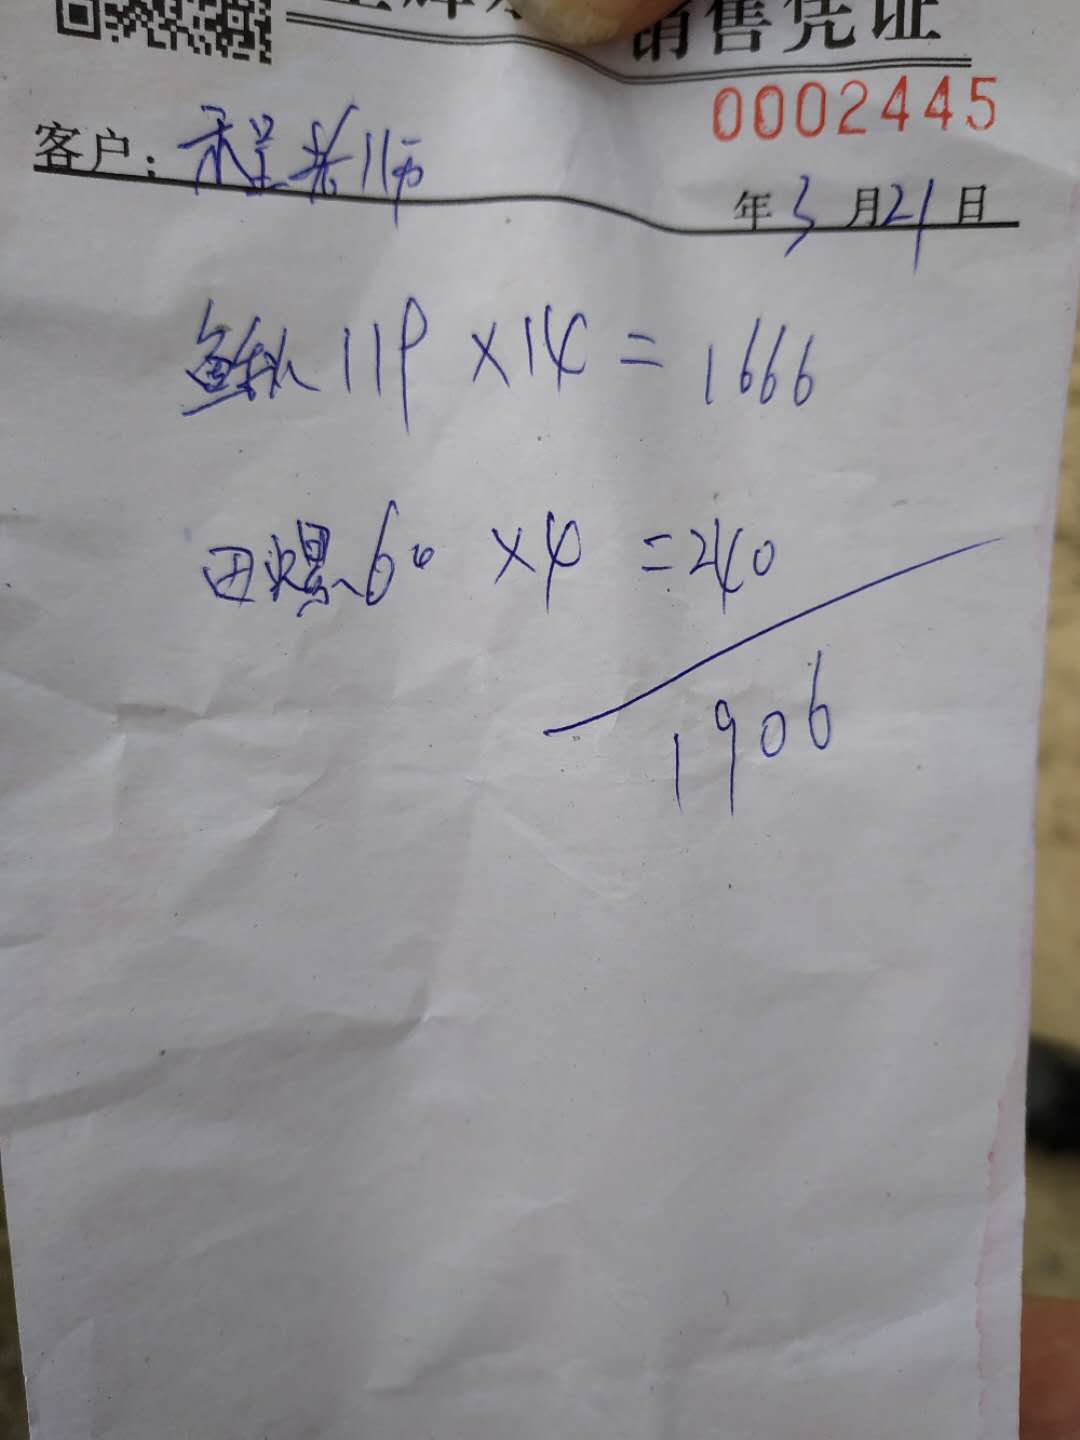 销售凭证
0002445
客户：程老师
年3月21日
鳅119×14=1666
田螺60×4=240
1906